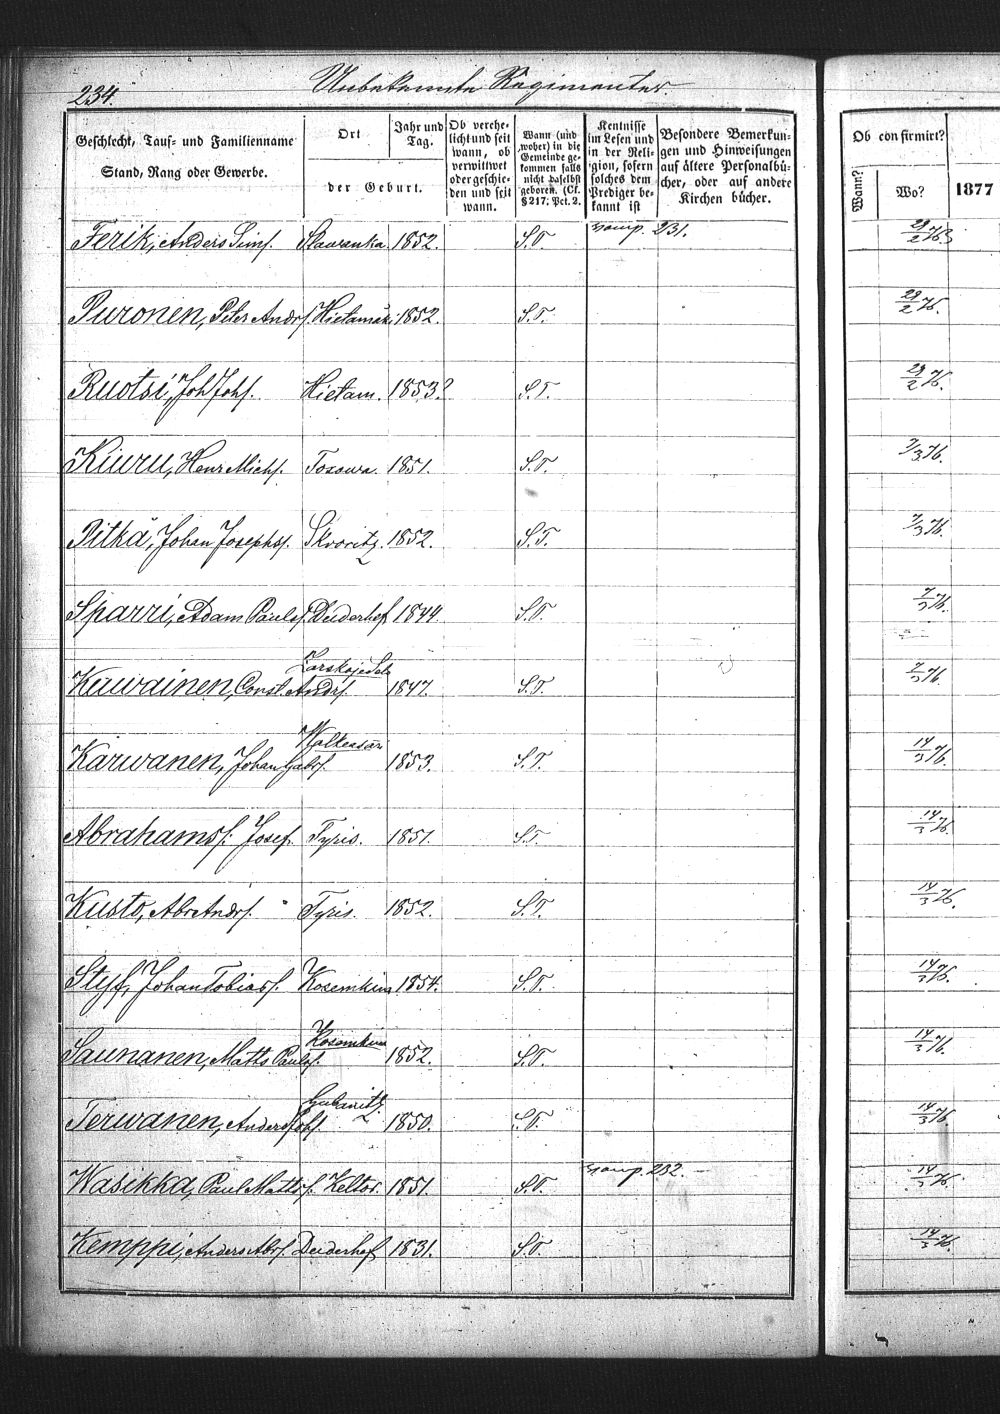 234. Unbekannte Regimenter.
Geschlecht, Tauf- und Familienname
Stand, Rang oder Gewerbe.
Ort
der Geburt.
Jahr und
Tag.
Ob verehe-
licht und seit
wann, ob
verwittwet
oder geschie-
den und seit
wann.
Wann (und
woher) in die
Gemeinde ge-
kommen falls
nicht daselbst
geboren. (Cf.
§ 217; Pct. 2.
Kentnisse
im Lesen und
in der Reli-
gion, sofern
solches dem
Prediger be-
kannt ist
Besondere Bemerkun-
gen und Hinweisungen
auf ältere Personalbü-
cher, oder auf andere
Kirchen bücher.
Ob confirmirt?
Wann?
Wo?
1877
Ferik, Anders Sims. Skavranka 1852. S.T. 231. 29/2 76
Puronen, Peter Andrs. Hietamäki 1852. S.T. 29/2 76.
Ruotsi, Joh Johs. Hietam. 1853? S.T. 29/2 76.
Kiuru, Henr Michs. Toxowa. 1851. S.T. 7/3 76.
Pitkä, Johan Josephs. Skvoritz. 1852. S.T. 7/3 76.
Sparri, Adam Pauls. Duderhof 1844. S.T. 7/3 76.
Zarskoje Selo
Kauvainen, Const. Andrs. 1847. S.T. 7/3 76.
Walkeasari
Karwanen, Johan Gabrs. 1853. S.T. 14/3 76.
Abrahams. Josef. Tyris. 1851. S.T. 14/3 76.
Kusto, Abr Andrs. Tyris. 1852. S.T. 14/3 76.
Styf, Johan Tobias s. Kosemkina 1854. S.T. 14/3 76.
Kosemkina
Saunanen, Matts Pauls. 1852. S.T. 14/3 76.
Gubanitz
Terwanen, Anders Johs. 1850. S.T. 14/3 76.
Wasikka, Paul Matts s. Keltos. 1851. S.T. 232. 14/3 76.
Kemppi, Anders Abrs. Duderhof 1831. S.T. 14/3 76.